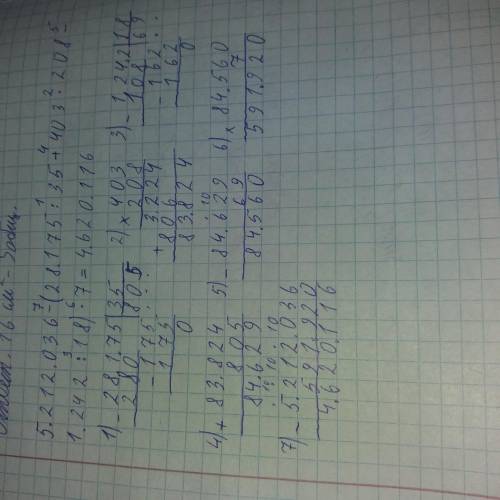 Ответ. 16 см² - Sобщ.
5.212.036-(28.175:35+403·208-
1.242:18)·7=4.620.116
1) -28.175|35
280 |805
-175
175
0
2) ×403
208
+3.224
806
83.824
3) -1.242|18
108 |69
-162
162
0
4) +83.824
805
84.629
5) -84.629
69
84.560
6) ×84.560
7
591.920
7) -5.212.036
591.920
4.620.116